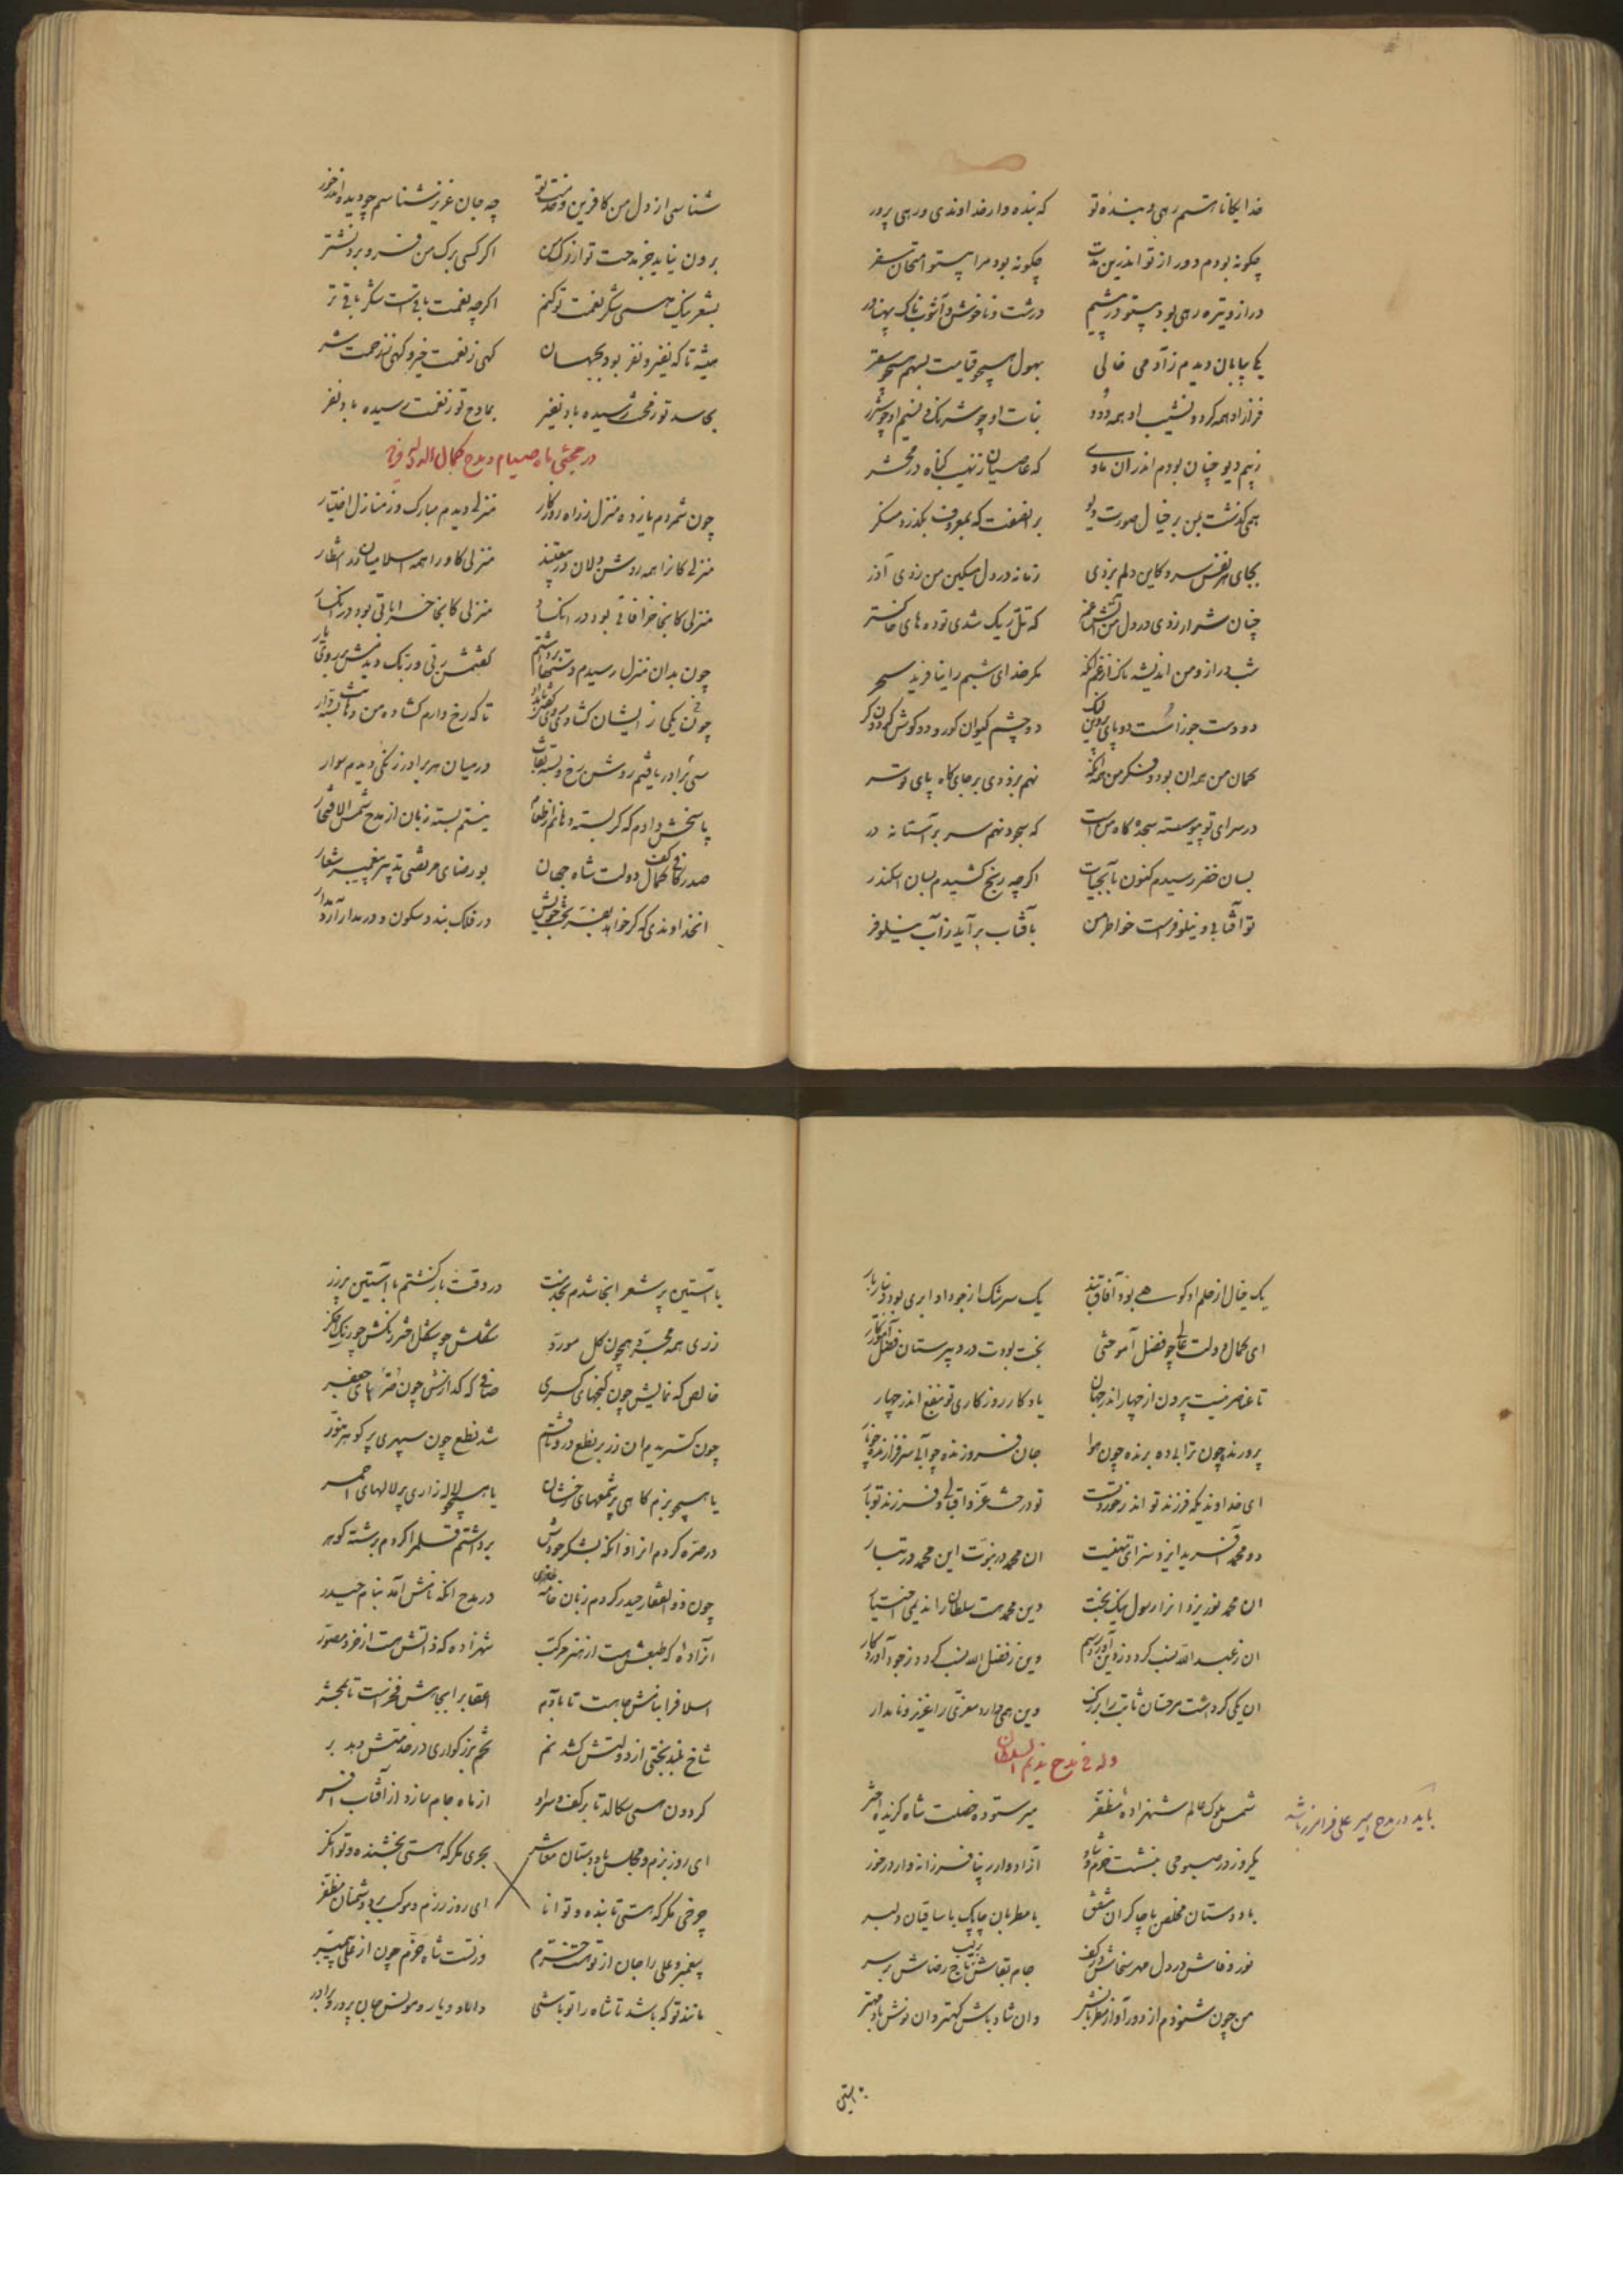 خدایکانا هستم رهی و بنده تو که بنده دار خداوندی و رهی پرور
چگونه بودم دور از تو اندرین مدت چگونه بود مرا بیتو امتحان سفر
دراز و تیره رهی بود بیتو در پیشم درشت و ناخوش و آشوبناک و پهناور
یکی بیابان دیدم ز آدمی خالی بهول همچو قیامت بسهم همچو سقر
فراز او همه کرد و نشیب او همه دود نبات او چو شرنک و نسیم او چو شرر
ز بیم دیو چنان بودم اندران وادی که عاصیان ز نهیب کناه در محشر
همی کذشت بمن بر خیال صورت دیو بر انصفت که بمعروف بکذرد منکر
بجای هر نفس سرد کاین دلم بزدی زمانه در دل مسکین من زدی آذر
چنان شرار زدی در دل من آتش غم که تل ریک شدی توده های خاکستر
شب دراز و من اندیشه ناک از غم آنکه مکر خدای شبم را نیافرید سحر
دو دست جوزا شست و دو پای پروین لنک دو چشم کیوان کور و دو کوش کردون کر
کمان من بمه آن بود و فکر من همه آنکه نهم بزودی بر جایگاه پای تو سر
در سرای تو پیوسته سجده گاه من است که سجود نهم سر بر آستانه در
بسان خضر رسیدم کنون بآب حیات اگرچه رنج کشیدم بسان اسکندر
تو آفتابی و نیلوفرست خاطر من بآفتاب برآید ز آب نیلوفر
شناسی از دل من کافرین و خدمت تو چه جان عزیز شناسم چو دیده اندر خور
برون نیاید جز مدحت تو از رک من اگر کسی برک من فرو برد نشتر
بشعر نیک همی شکر نعمت تو کنم اگرچه نعمت باقیست شکر باقی تر
همیشه تا که نفیر و نفر بود بجهان کهی ز نعمت خیر و کهی ز زحمت شر
بحاسد تو ز محنت رسیده باد نفیر بمادح تو ز نعمت رسیده باد نفر
در مجئی ماه صیام و مدح کمال الدوله
چون شمردم یازده منزل ز راه روزکار منزلی دیدم مبارک وز منازل اختیار
منزلی کانرا همه روشن دلان معتقدند منزلی کاو را همه اسلامیان در انتظار
منزلی کانجا خرافاتی بود در انکسار منزلی کانجا خراباتی بود در انکسار
چون بدان منزل رسیدم دستها برداشتم کفتمش ربی و ربک دیدمش بر روی یار
چون یکی ز ایشان کشادی روی گفتی تا که رخ دارم کشاده من دهان بسته دار
سی برادر یافتم روشن رخ و بسته نقاب در میان هر برادر زنکی دیدم سوار
پاسخش دادم که کر بسته دهانم از طعام نیستم بسته زبان از مدح شمس الافتخار
صدر کافی کف کمال دولت شاه جهان بو رضای مرتضی تدبیر پیغمبر شعار
انخداوندی که کر خواهد بقدر بخت خویش در فلک بندد سکون و در مدار آرد مدار
یک خیال از حلم او کوهی بود آفاق بند یک سرشک از جود او ابری بود دینار بار
ای کمال دولت عالی چو فضل آموختی بخت بودت در دبیرستان فضل آموزکار
تا عناصر نیست بیرون از چهار اندر جهان یادکار روزکاری تو بنفع اندر چهار
پرورنده چون ترابی ده برنده چون هوا جان فروزنده چو آبی سرفرازنده چو نار
ای خداوندیکه فرزند تو اندر خورد تست تو درخت عز و اقبالی و فرزند تو بار
دو محمد آفرید ایزد سزای تهنیت ان محمد در نبوت این محمد در تبار
ان محمد نور یزدانرا رسول نیکبخت وین محمد هست سلطان را ندیمی اختیار
ان ز عبدالله نسب کرد و ز دین آورد رسم وین ز فضل الله نسب کرد و ز جود آورد کار
ان یکی کر داشت مر حسان ثابت را بزرک وین همی دارد معزی را عزیز و نامدار
وله فی مدح ندیم السلطان
باید در مدح امیر علی فرامرز باشد
شمس ملوک عالم شهزاده مظفر میر ستوده خصلت شاه گزیده اختر
یکروز در صبوحی بنشست خرم و شاد آزاده وار زیبا فرزانه وار در خور
با دوستان مخلص با چاکران مشفق با مطربان چابک با ساقیان دلبر
نور وفاش در دل مهر سخاش در کف جام بقاش بر لب تاج رضاش بر سر
من چون شنودم از دور آواز مطربانش وان شاد باش کهتر وان نوش باد مهتر
با آستین
با آستین پر شعر انجا شدم بخدمت در وقت باز کشتم با آستین پر زر
زری همه مجرد همچون کل مورد شکلش چو شکل اختر رنکش چو رنک اخکر
خالص که نمایش چون کنجهای کسری صافی که کدازش چون ضربهای جعفر
چون کستریدم ان زر بر نطع در وثاقم شد نطع چون سپهری پر کوهر منور
یا همچو بزم کاهی پر شمعهای رخشان یا همچو لاله زاری پر لالهای احمر
در صره کردم انزر از آنکه بشکر جودش برداشتم قلم را کردم برشته کوهر
چون ذوالفقار حیدر کردم زبان خامه در مدح انکه نامش آمد بنام حیدر
آزاده که طبعش هست از هنر مرکب شهزاده که ذاتش هست از خرد مصور
اسلاف را بنامش جاهست تا بآدم اعقاب را بجاهش فخر است تا بمحشر
شاخ بلند بختی از دولتش کشد نم تخم بزرکواری در خدمتش دهد بر
کردون همی سکالد تا بر کف و سر او از ماه جام سازد از آفتاب افسر
ای روز بزم و مجلس با دوستان معاشر بحری مکر که هستی بخشنده و توانکر
چرخی مکر که هستی تابنده و توانا ای روز رزم و موکب بر دشمنان مظفر
پیغمبر و علی را جان از تو هست خرم وز تست شاه خرم چون از علی پیمبر
مانند تو که باشد تا شاه را تو باشی داماد و یار و مونس جان پرور و برادر